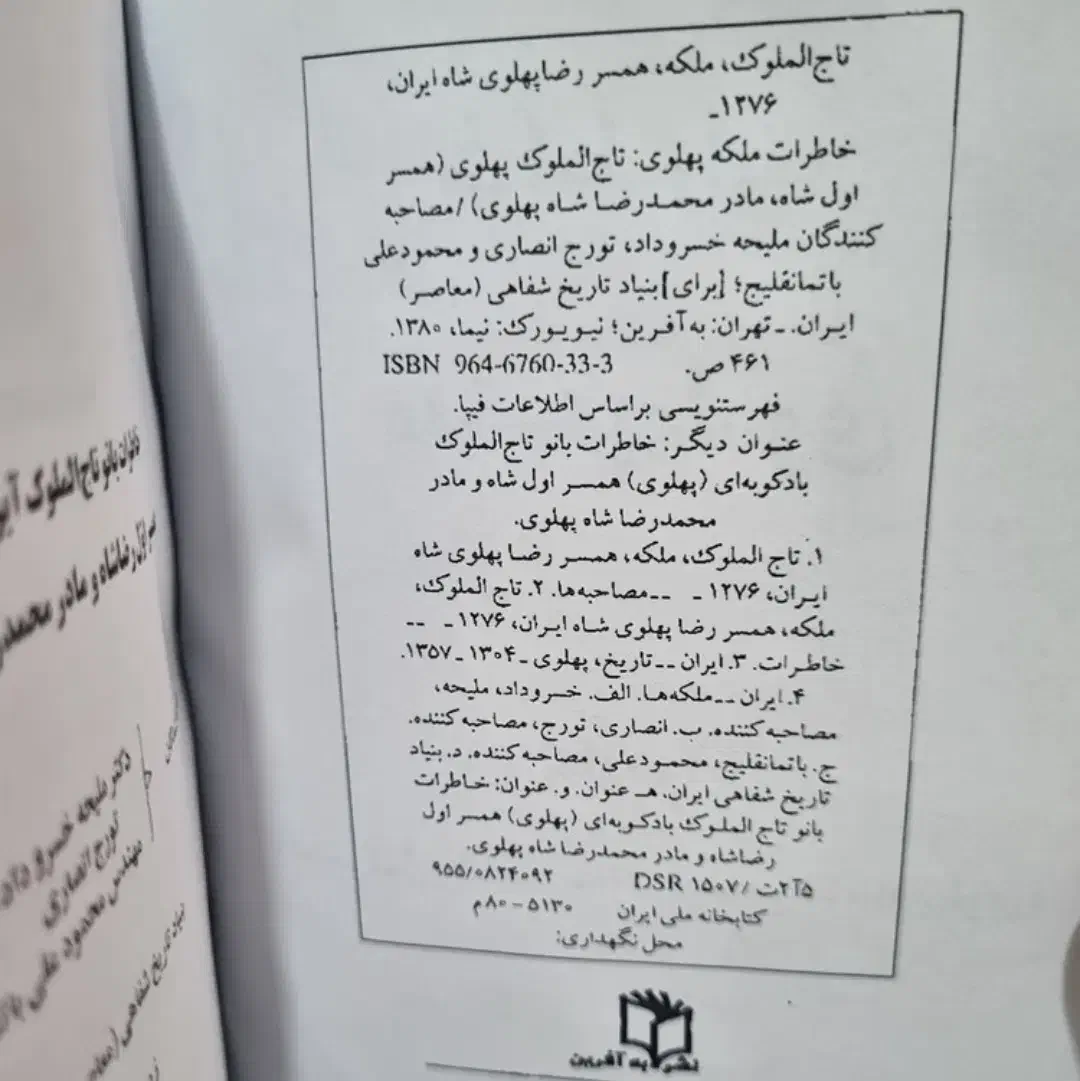 تاج‌الملوک، ملکه، همسر رضا پهلوی شاه ایران،
۱۲۷۶ـ
خاطرات ملکه پهلوی: تاج‌الملوک پهلوی (همسر
اول شاه، مادر محمدرضا شاه پهلوی) /مصاحبه
کنندگان ملیحه خسروداد، تورج انصاری و محمودعلی
باتمانقلیج؛ [برای] بنیاد تاریخ شفاهی (معاصر)
ایران. ـ تهران: به‌آفرین؛ نیویورک: نیما، ۱۳۸۰.
۴۶۱ ص. ISBN 964-6760-33-3
فهرستنویسی براساس اطلاعات فیپا.
عنوان دیگر: خاطرات بانو تاج‌الملوک
بادکوبه‌ای (پهلوی) همسر اول شاه و مادر
محمدرضا شاه پهلوی.
۱. تاج الملوک، ملکه، همسر رضا پهلوی شاه
ایران، ۱۲۷۶ ـ ــ مصاحبه‌ها. ۲. تاج الملوک،
ملکه، همسر رضا پهلوی شاه ایران، ۱۲۷۶ ـ ــ
خاطرات. ۳. ایران ــ تاریخ، پهلوی ـ ۱۳۰۴ ـ ۱۳۵۷.
۴. ایران ــ ملکه‌ها. الف. خسروداد، ملیحه،
مصاحبه کننده. ب. انصاری، تورج، مصاحبه کننده.
ج. باتمانقلیج، محمودعلی، مصاحبه کننده. د. بنیاد
تاریخ شفاهی ایران. هـ عنوان. و. عنوان: خاطرات
بانو تاج الملوک بادکوبه‌ای (پهلوی) همسر اول
رضاشاه و مادر محمدرضا شاه پهلوی.
۵آ۲ت / DSR ۱۵۰۷ ۹۵۵/۰۸۲۴۰۹۲
کتابخانه ملی ایران ۵۱۳۰ - ۸۰م
محل نگهداری:
نشر به آفرین
بانو تاج الملوک
رضاشاه و مادر
دکتر ملیحه خسروداد
تورج انصاری
مهندس محمود علی
بنیاد تاریخ شفاهی